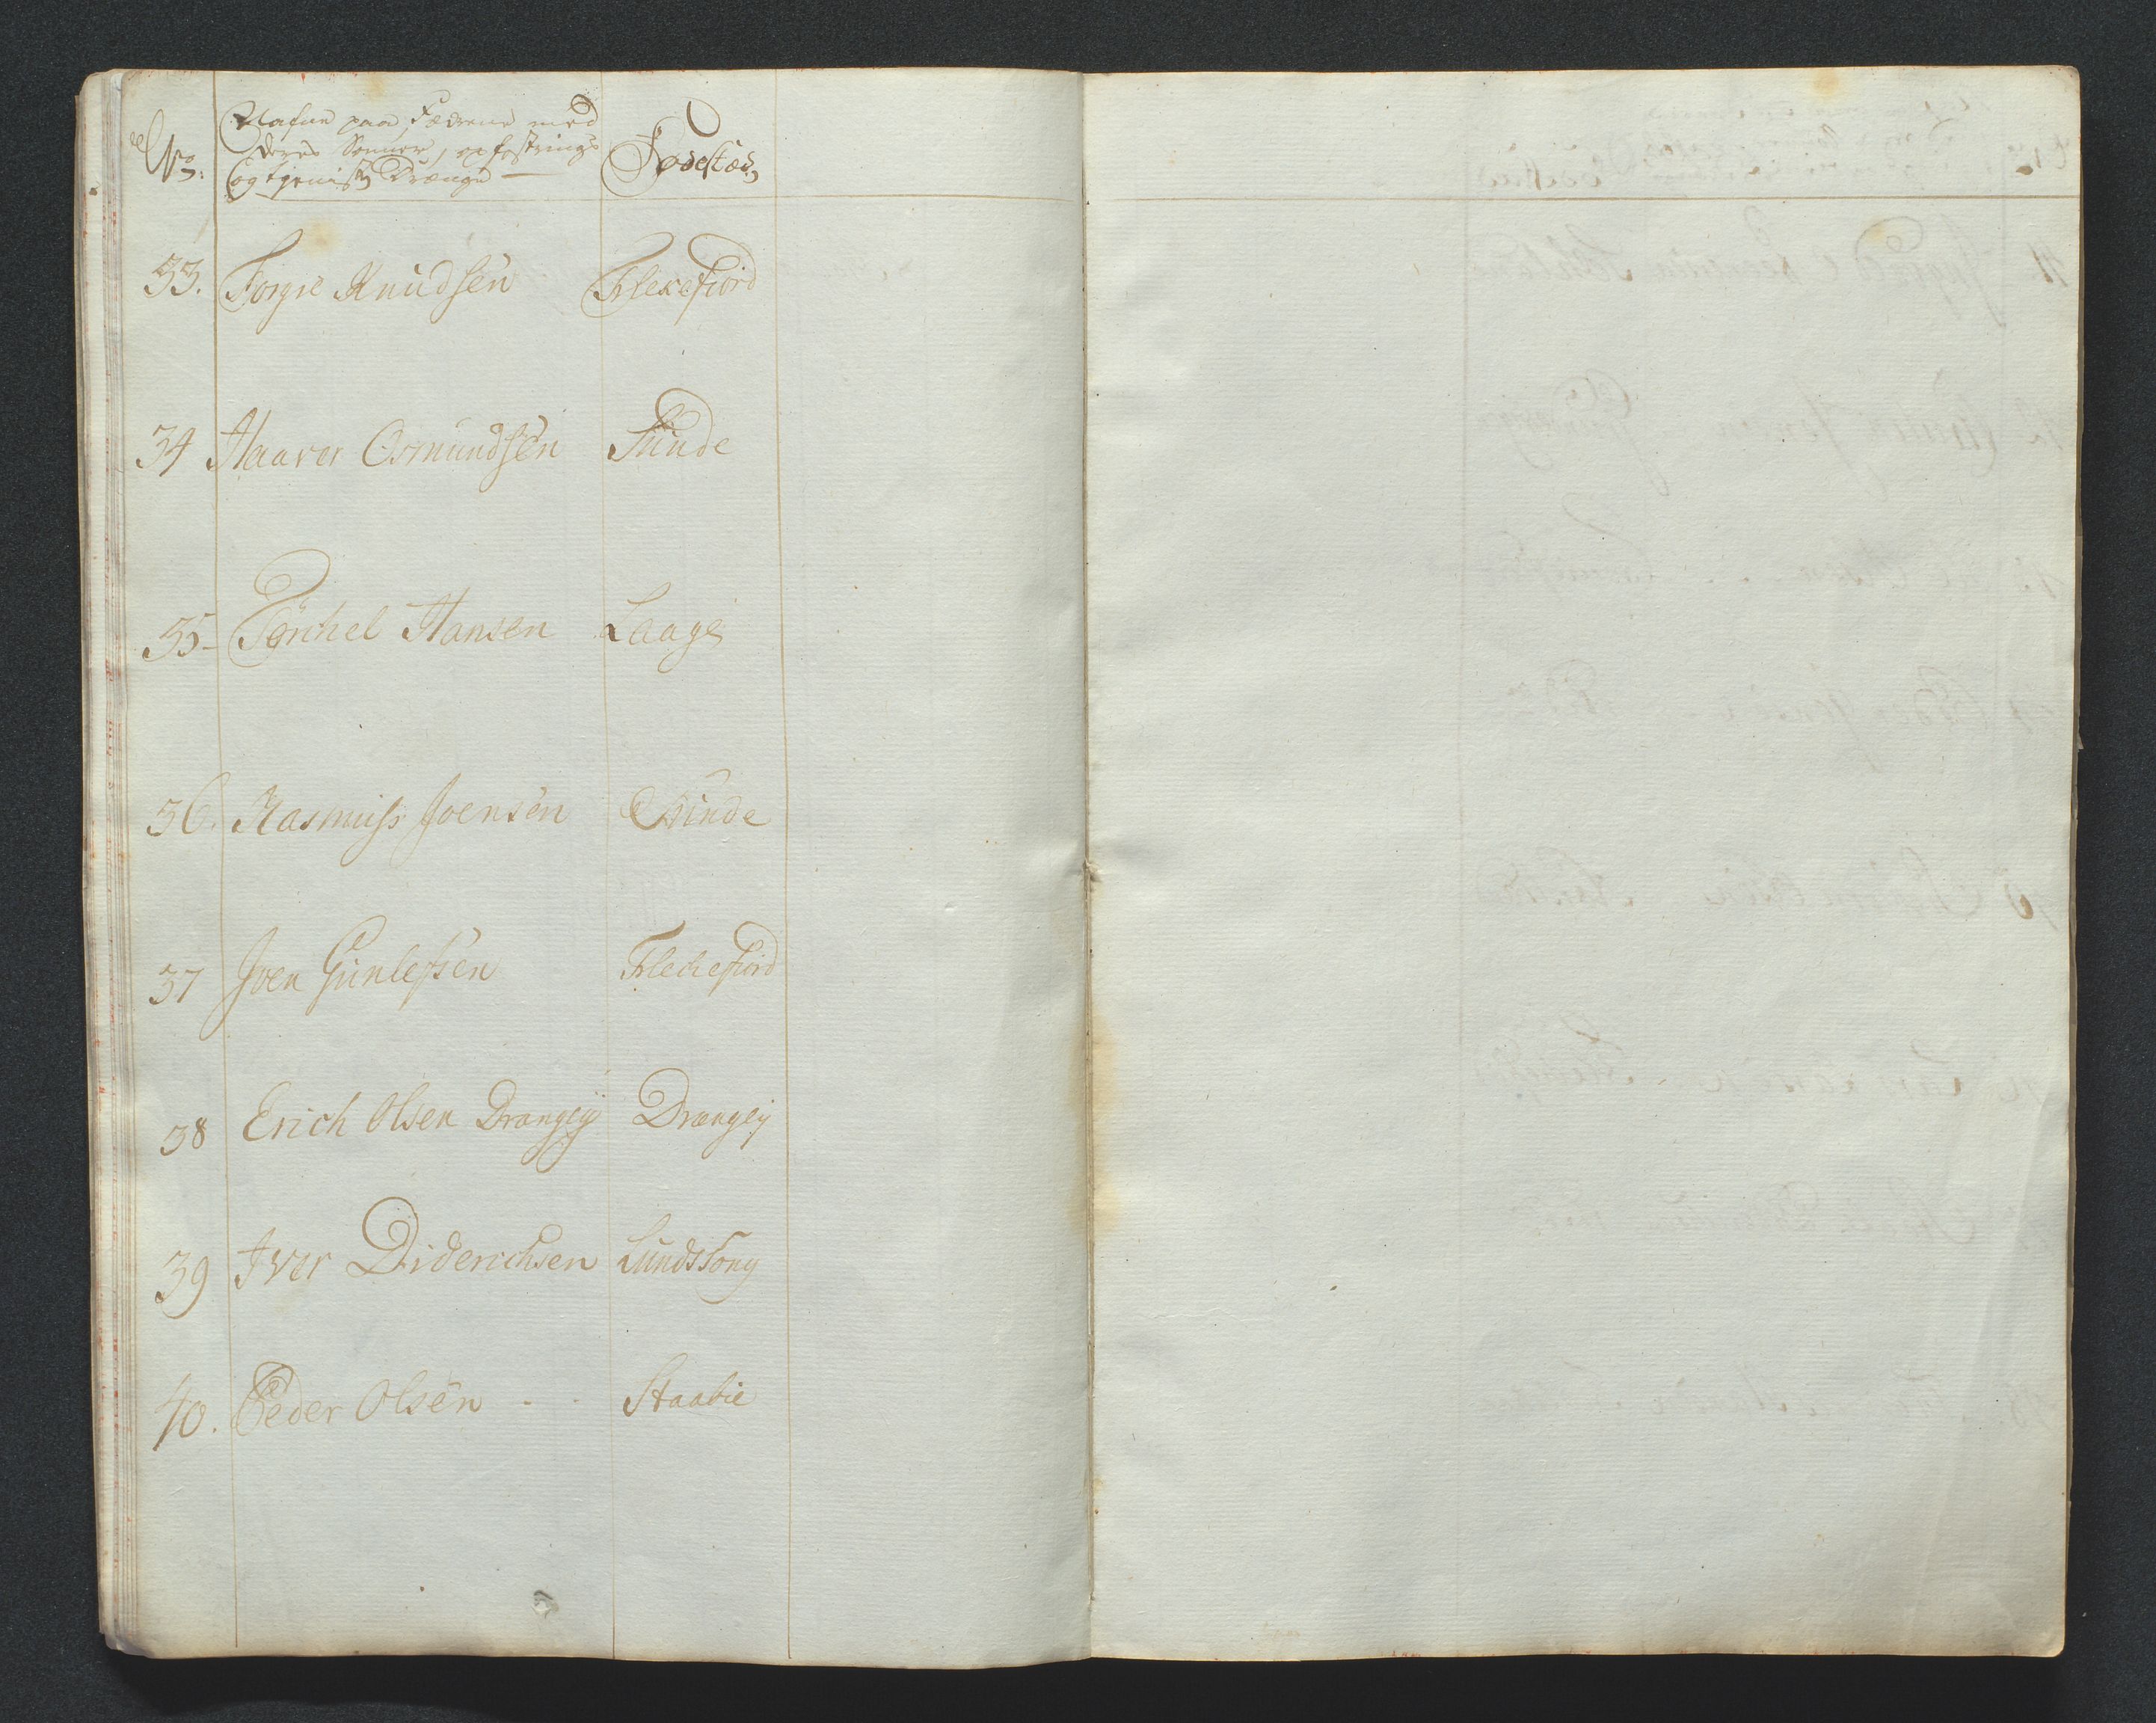 No: Nafne paa Fædrene med deres Sønner, opfostrings og tjeniste Drænge Fødestæd
33. Torgre Knudsen Flekefiord
34 Haaver Osmundsen Sunde
35 Tørchel Hansen Laage
36. Rasmuss Joensen Sunde
37 Joen Gunlefsen Flechefiord
38 Erich Olsen Drangeÿ Drangeÿ
39 Iver Diderichsen Lunds Song
40. Peder Olsen - - Staabie